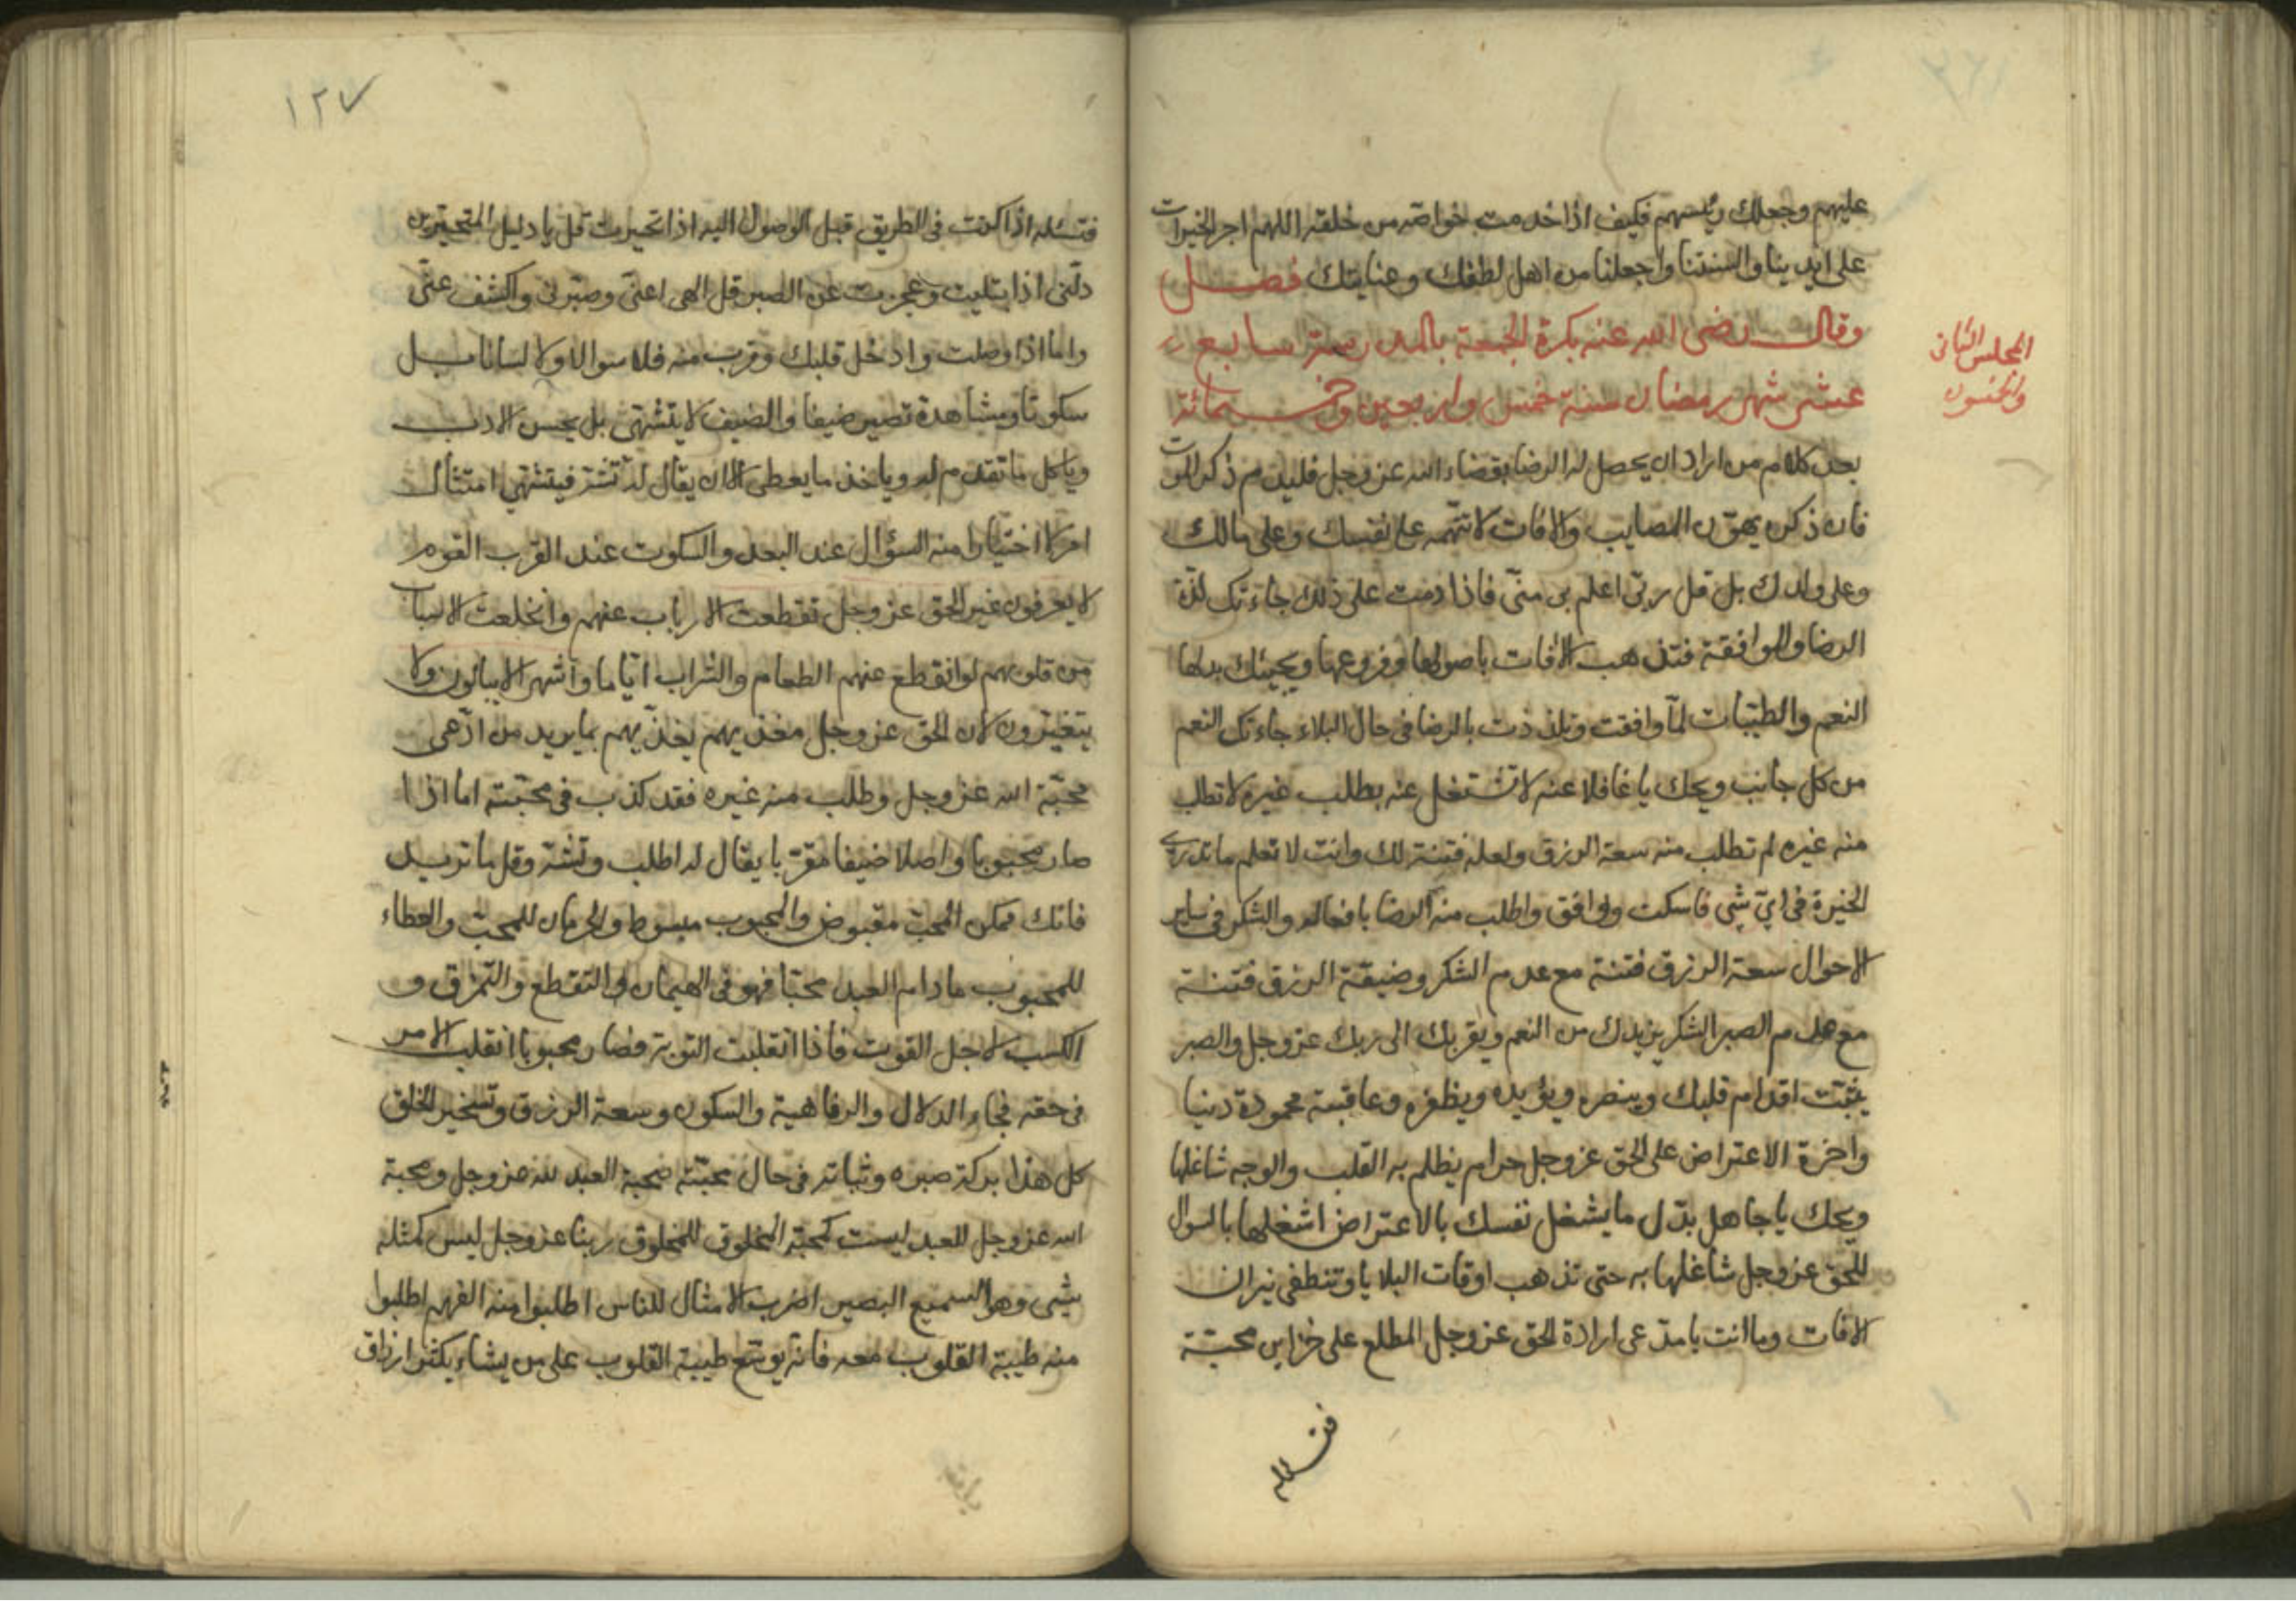 عليهم وجعلك رئيسهم فكيف اذا خدمت خواصه من خلقه اللهم اجر الخيرات
على ايدينا والسنتنا واجعلنا من اهل لطفك وعنايتك فصل
وقال رضى الله عنه بكرة الجمعة بالمدرسة سابع
عشر شهر رمضان سنة خمس واربعين وخمسمائة
المجلس الثانى
والخمسون
بعد كلام من اراد ان يحصل له الرضا بقضاء الله عز وجل فليدم ذكر الموت
فان ذكره يهوّن المصايب والافات لا تتهمه على نفسك وعلى مالك
وعلى ولدك بل قل ربّى اعلم بى منّى فاذا دمت على ذلك جاءتك لذّة
الرضا والموافقة فتذهب الافات باصولها وفروعها ويجيئك بدلها
النعم والطيّبات لمّا وافقت وتلذذت بالرضا فى حال البلاء جاءتك النعم
من كل جانب ويحك يا غافلا عنه لا تشتغل عنه بطلب غيره لا تطلب
منه غيره لم تطلب منه سعة الرزق ولعله فتنة لك وانت لا تعلم ما تدرى
الخيرة فى اىّ شى فاسكت ووافق واطلب منه الرضا بافعاله والشكر فى ساير
الاحوال سعة الرزق فتنة مع عدم الشكر وضيقة الرزق فتنة
مع عدم الصبر الشكر يزيدك من النعم ويقربك الى ربك عز وجل والصبر
يثبّت اقدام قلبك وينصره ويؤيده ويظفره وعاقبته محمودة دنيا
واخرة الاعتراض على الحق عز وجل حرام يظلم به القلب والوجه شاغلها
ويحك يا جاهل بدّل ما يشغل نفسك بالاعتراض اشغلها بالسوال
للحق عز وجل شاغلها به حتى تذهب اوقات البلايا وتنطفى نيران
الافات وما انت يا مدّعى ارادة الحق عز وجل المطلع على خزاين محبّته
فتسئله
١٢٧
فتسئله اذا كنت فى الطريق قبل الوصول اليه اذا تحيرت قل يا دليل المتحيّرين
دلّنى اذا بتليت وعجزت عن الصبر قل الهى اعنّى وصبّرنى واكشف عنّى
واما اذا وصلت وادخل قلبك وقرب منه فلا سوالا ولا لسانا بل
سكوتا ومشاهدة تصير ضيفا والضيف لا يتشهّى بل يحسن الادب
وياكل ما تقدم له وياخذ ما يعطى الا ان يقال له تشهّ فيتشهى امتثالا
امرا لا اختيارا منه السؤال عند البعد والسكوت عند القرب القوم
لا يعرفون غير الحق عز وجل تقطعت الارباب عنهم وانخلعت الاسباب
من قلوبهم لو انقطع عنهم الطعام والشراب ايّاما واشهرا لا يبالون ولا
يتغيّرون لان الحق عز وجل مغذيهم يغذّيهم بما يريد من ادّعى
محبّة الله عز وجل وطلب منه غيره فقد كذب فى محبّته اما اذا
صار محبوبا واصلا ضيفا مقرّبا يقال له اطلب وتشهّ وقل ما تريد
فانك ممكن المحبّ مقبوض والمحبوب مبسوط والحرمان للمحبّ والعطاء
للمحبوب ما دام العبد محبّا فهو فى الهيمان والتقطع والتمزق و
الكسب لاجل القوت فاذا انقلبت النوبة فصار محبوبا انقلب الامر
فى حقه فجاء الدلال والرفاهية والسكون وسعة الرزق وتسخير الخلق
كل هذا بركة صبره وثباته فى حال محبّته محبة العبد لله عز وجل ومحبة
الله عز وجل للعبد ليست كمحبّة المخلوق للمخلوق ربنا عز وجل ليس كمثله
شيئى وهو السميع البصير اضرب الامثال للناس اطلبوا منه الفهم اطلبوا
منه طيبة القلوب معه فانه يوسّع طيبة القلوب على من يشاء يكثر ارزاق